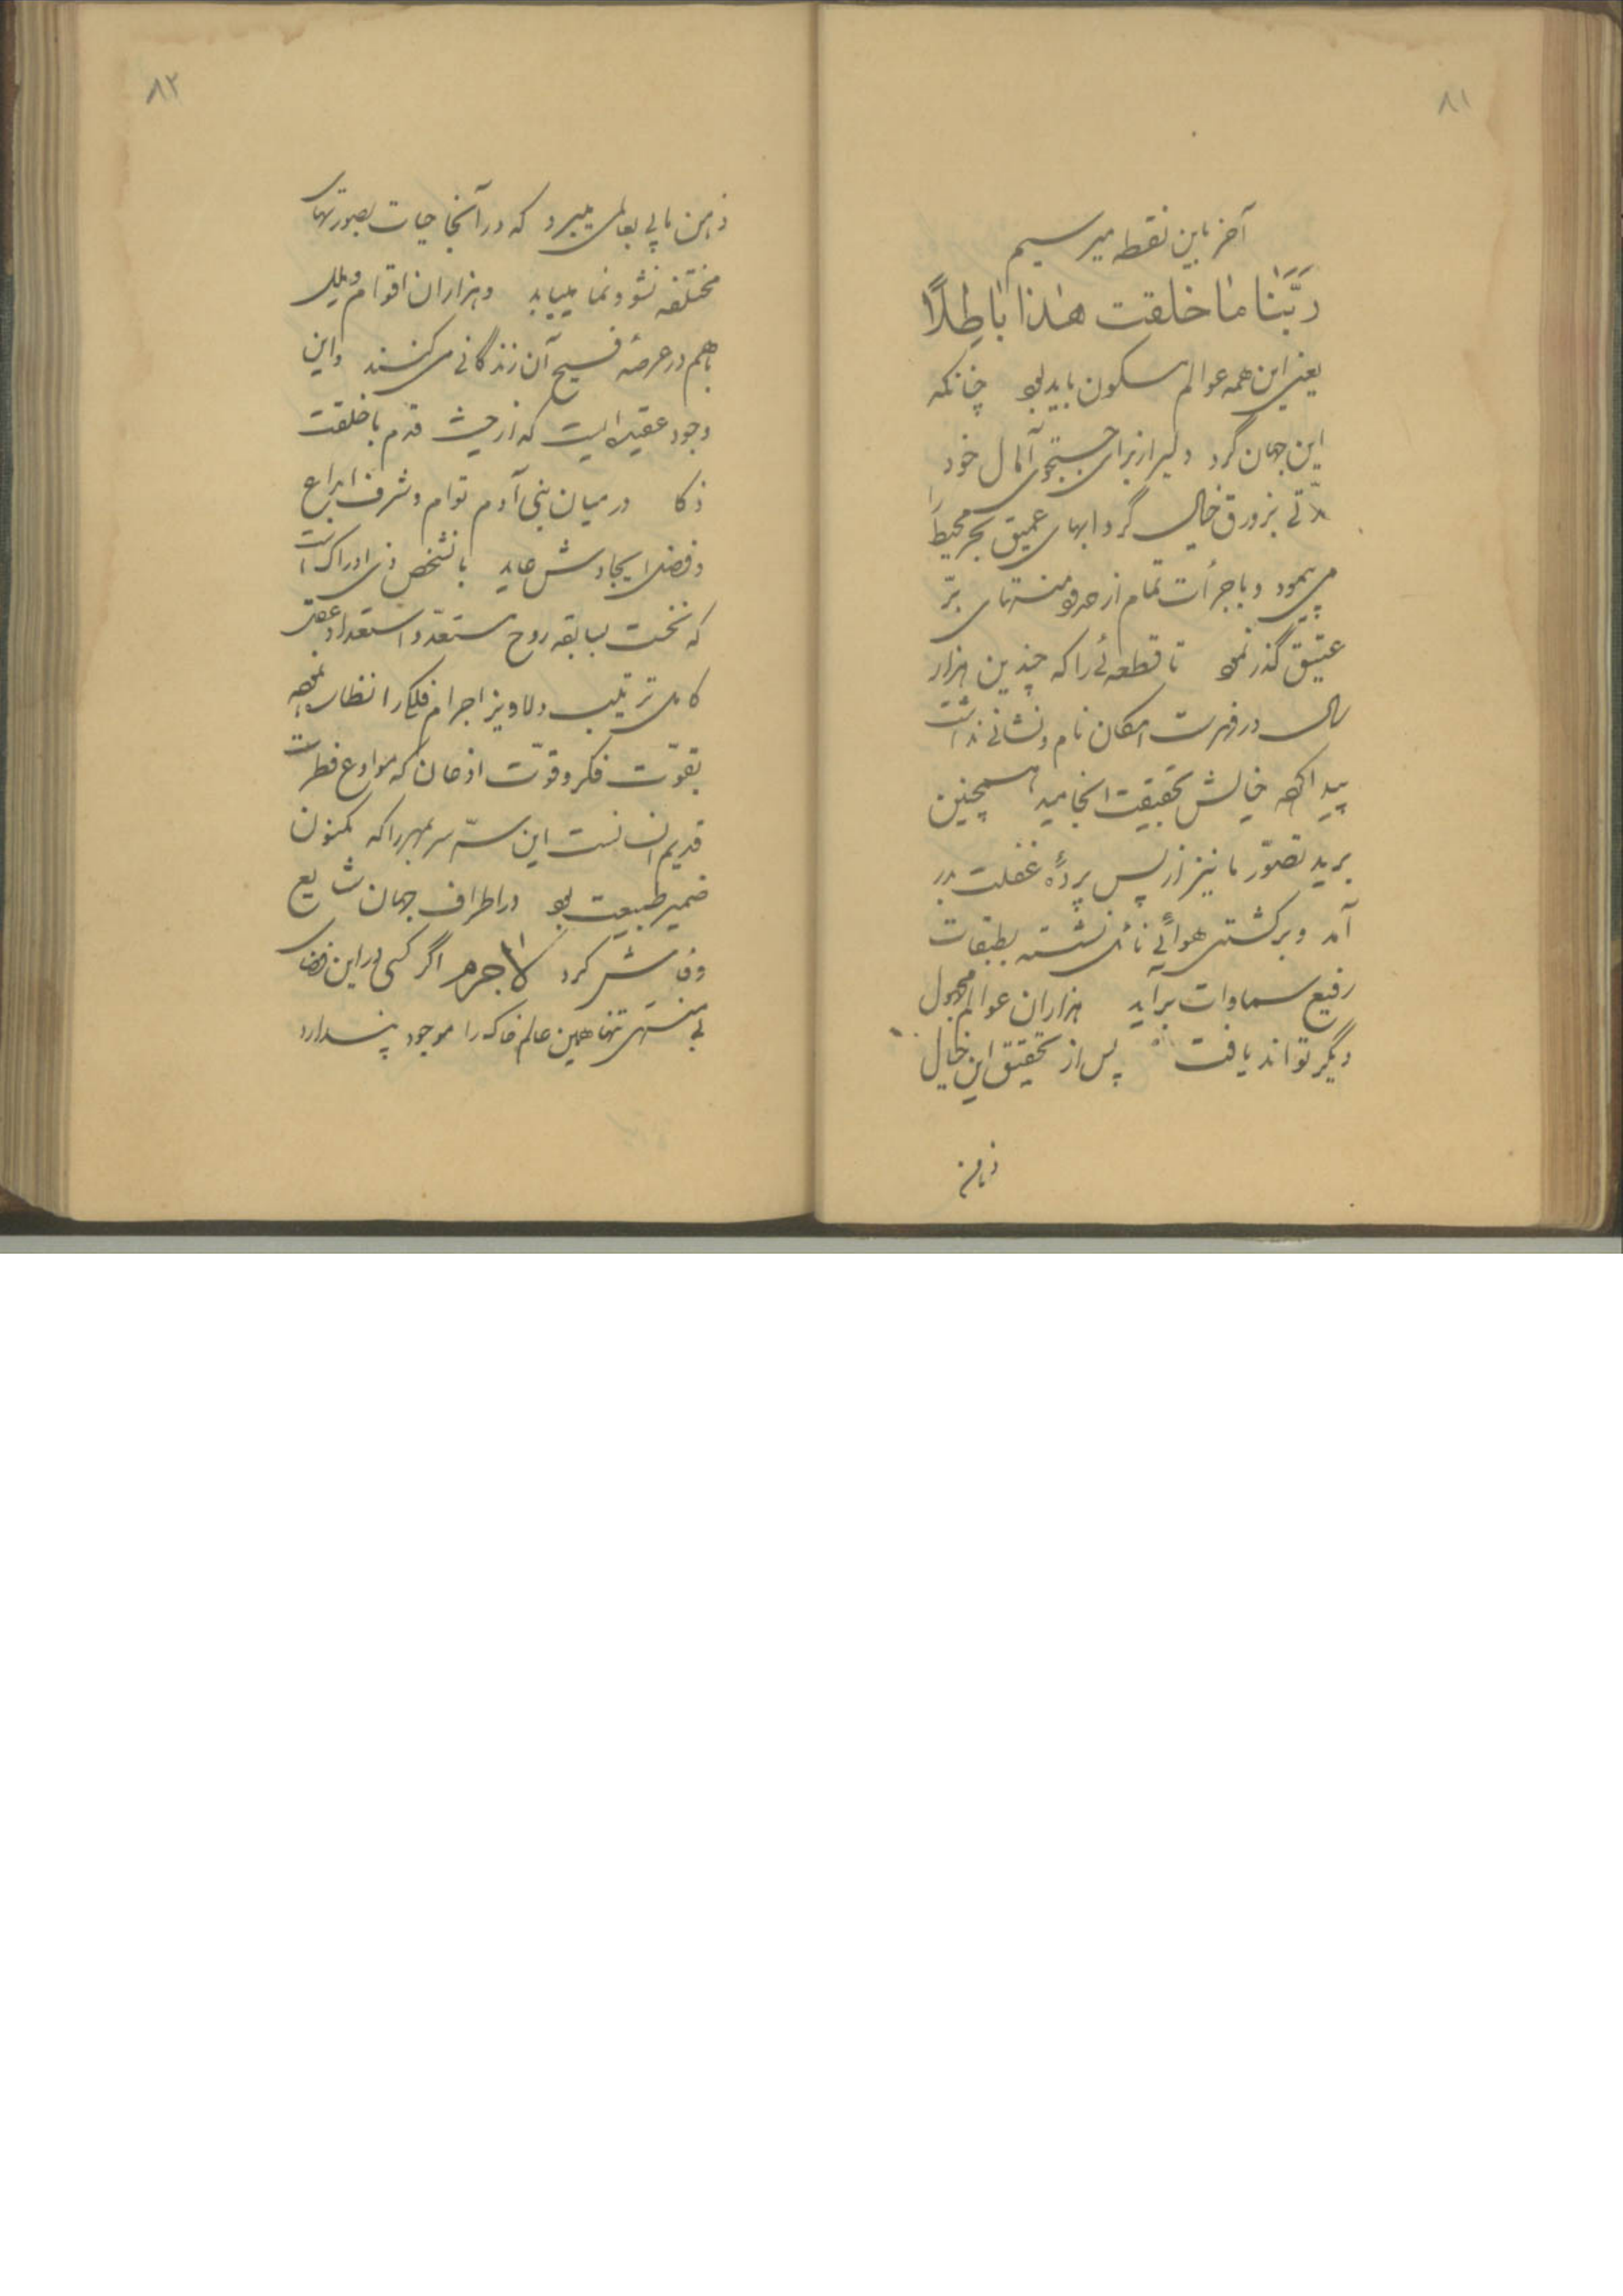 ۸۱
آخر باین نقطه میرسیم
رَبَّنا ما خلقت هذا باطِلاً
یعنی این همه عوالم مسکون باید بود چنانکه
این جهان گرد دلیر از برای جستجوی آمال خود
مدّتی بزورق خیال گردابهای عمیق بحر محیط را
می پیمود و باجرأت تمام از حدود منتهای برّ
عتیق گذر نمود تا قطعهٔ را که چندین هزار
سال در فهرست امکان نام و نشانی نداشت
پیدا کرد خیالش بحقیقت انجامید همچنین
برید تصوّر ما نیز از پس پردهٔ غفلت بدر
آمد و بر کشتی هوائی نشسته بطبقات
رفیع سماوات برآید هزاران عوالم مجهول
دیگر تواند یافت پس از تحقیق این خیال
ذهن
۸۲
ذهن ما پی بعالمی میبرد که در آنجا حیات بصورتهای
مختلفه نشو و نما مییابد و هزاران اقوام و ملل
باهم در عرصهٔ فسیح آن زندگانی می کنند و این
وجود عقیده ایست که از حیث قدم با خلقت
ذکا در میان بنی آدم توام و شرف ابداع
و فضل ایجادش عاید بانشخص ذی ادراک است
که نخست بسابقه روح مستعدّ و استعداد عقل
کامل ترتیب دلاویز اجرام فلکی را نظاره نموده
بقوّت فکر و قوّت اذعان که مواد ع فطرت
قدیم انسانست این سرّ سر بمهر را که مکنون
ضمیر طبیعت بود در اطراف جهان شایع
و فاش کرد لاجرم اگر کسی در این فضای
بی منتهی تنها همین عالم خاک را موجود پندارد